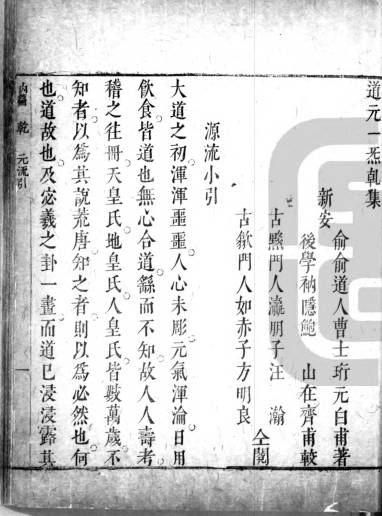 道元一炁乾集
俞俞道人曹士珩元白甫著
新安
後學衲隱鮑 山在齊甫較
古黟門人瀛朋子汪 瀚
古歙門人如赤子方明良
仝閱
源流小引
大道之初渾渾噩噩人心未彫元氣渾淪日用
飲食皆道也無心合道繇而不知故人人壽考
稽之往冊天皇氏地皇氏人皇氏皆數萬歲不
知者以爲其說荒唐知之者則以爲必然也何
也道故也及宓羲之卦一畫而道已浸浸露其
內篇 乾 元流引 一